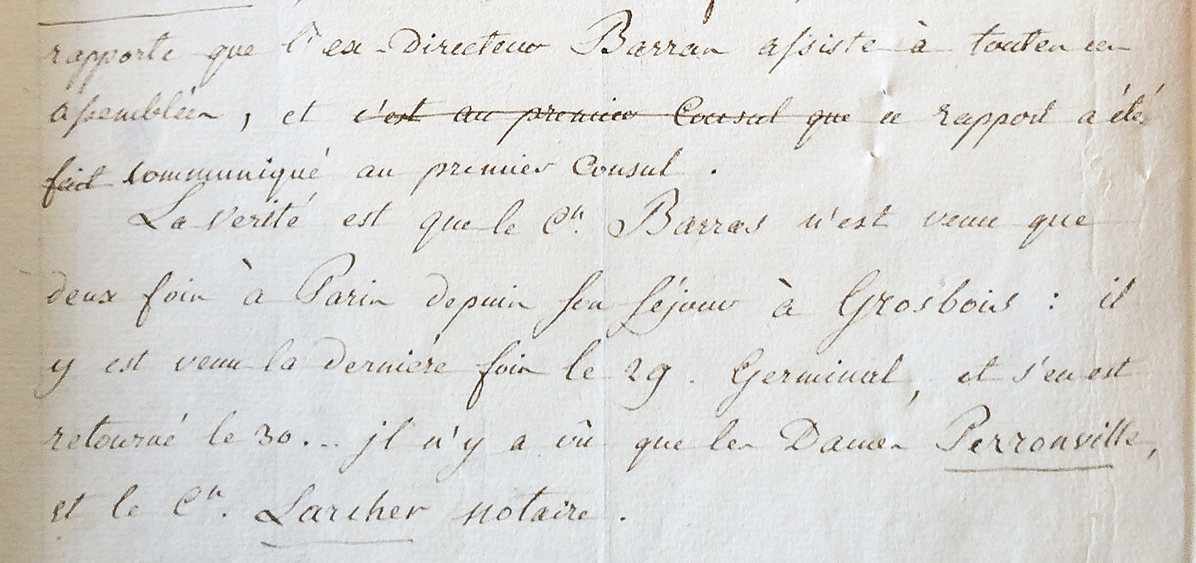 rapporte que l'ex-Directeur Barras assiste à toutes ces
assemblées, et c'est au premier Consul que ce rapport a été
fait communiqué au premier Consul.
La Verité est que le Cn. Barras n'est venu que
deux fois à Paris depuis son séjour à Grosbois : il
y est venu la derniére fois le 29. Germinal, et s'en est
retourné le 30... il n'y a vû que les Dames Perronville,
et le Cn. Larcher notaire.